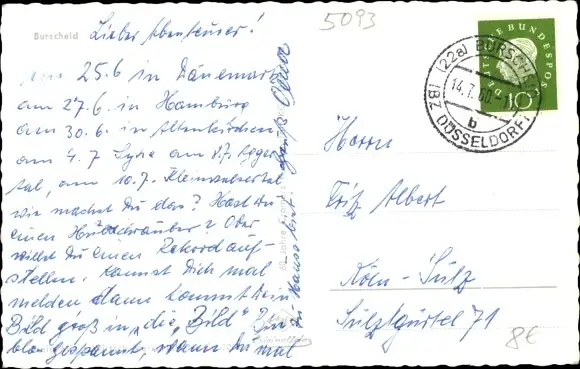 Burscheid
5093
Lieber Abenteurer!
am 25.6 in Dänemark
am 27.6 in Hamburg
am 30.6 in Altenkirchen
am 4.7 am 8.7. Agger
tal, am 10.7. Kleinwalsertal
wie machst Du das? Hast Du
einen Hubschrauber? Oder
willst Du einen Rekord auf-
stellen. Kannst Dich mal
melden dann kommt Dein
Bild groß in "die Bild"! Bin
gespannt, wann Du mal
zu Haus bist. Gruß
(22a) BURSCHEID
14.7.60
b
(BZ DÜSSELDORF)
DEUTSCHE BUNDESPOST
10
Herrn
Fritz Albert
Köln-Sülz
Sülzgürtel 71
8€